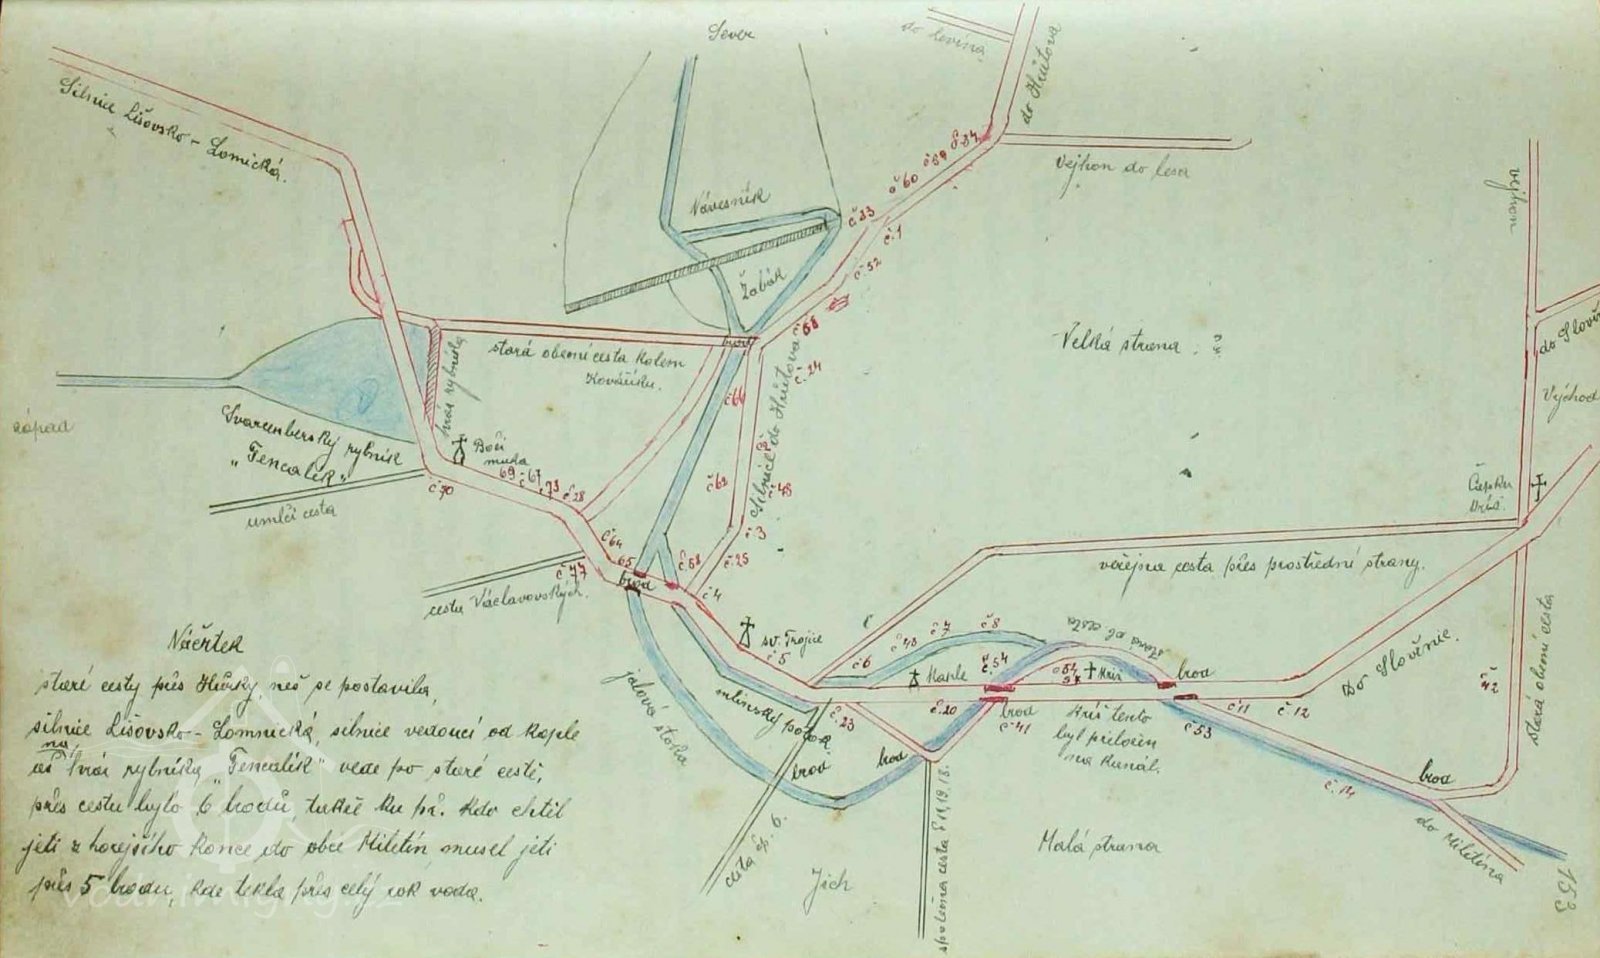 Sever
do Levína
do Hůrtova
Silnice Lišovsko - Lomická.
vejhon do lesa
č 34
č 59
č 60
č 33
č. 1
č 52
č 58
Návesník
Žabák
brod
stará obecní cesta kolem
Kovářiku.
hráz rybníka
západ
Švarcenberský rybník
"Fencalík"
umlčí cesta
Boží
muka
69
č 67
č 73
č 28
č 70
č 66
č 62
Silnice do Hůrtova
č. 24
č 48
č. 3
č. 25
č 58
č 4
č 64
65
brod
č 77
cesta Václavovských.
Velká strana
vejhon
do Slově
Východ
Čapku
kříž.
veřejna cesta přes prostřední strany.
Do Slověnic.
stará obecní cesta
č 42
sv. Trojice
č 5
č 6
č 43
č 7
č 8
č. 54
stará ob cesta
Kaple
Kříž
brod
č. 20
brod
č 41
Kříž tento
byl přeložen
na kanál.
č 11
č 12
č 53
č. 14
brod
do Miletína
č. 23
mlinský potok
jalová stoka
brod
brod
cesta čp. 6.
společna cesta č 11,19,18.
Malá strana
Jich
153
Náčrtek
staré cesty přes Hůrky, než se postavila,
silnice Lišovsko - Lomnická, silnice vedoucí od kaple
až na hráz rybníka "Fencalík" vede po staré cestě,
přes cestu bylo 6 brodů, takže ku př. kdo chtěl
jeti z horejšího konce do obce Miletín, musel jeti
přes 5 brodu, kde tekla přes celý rok voda.